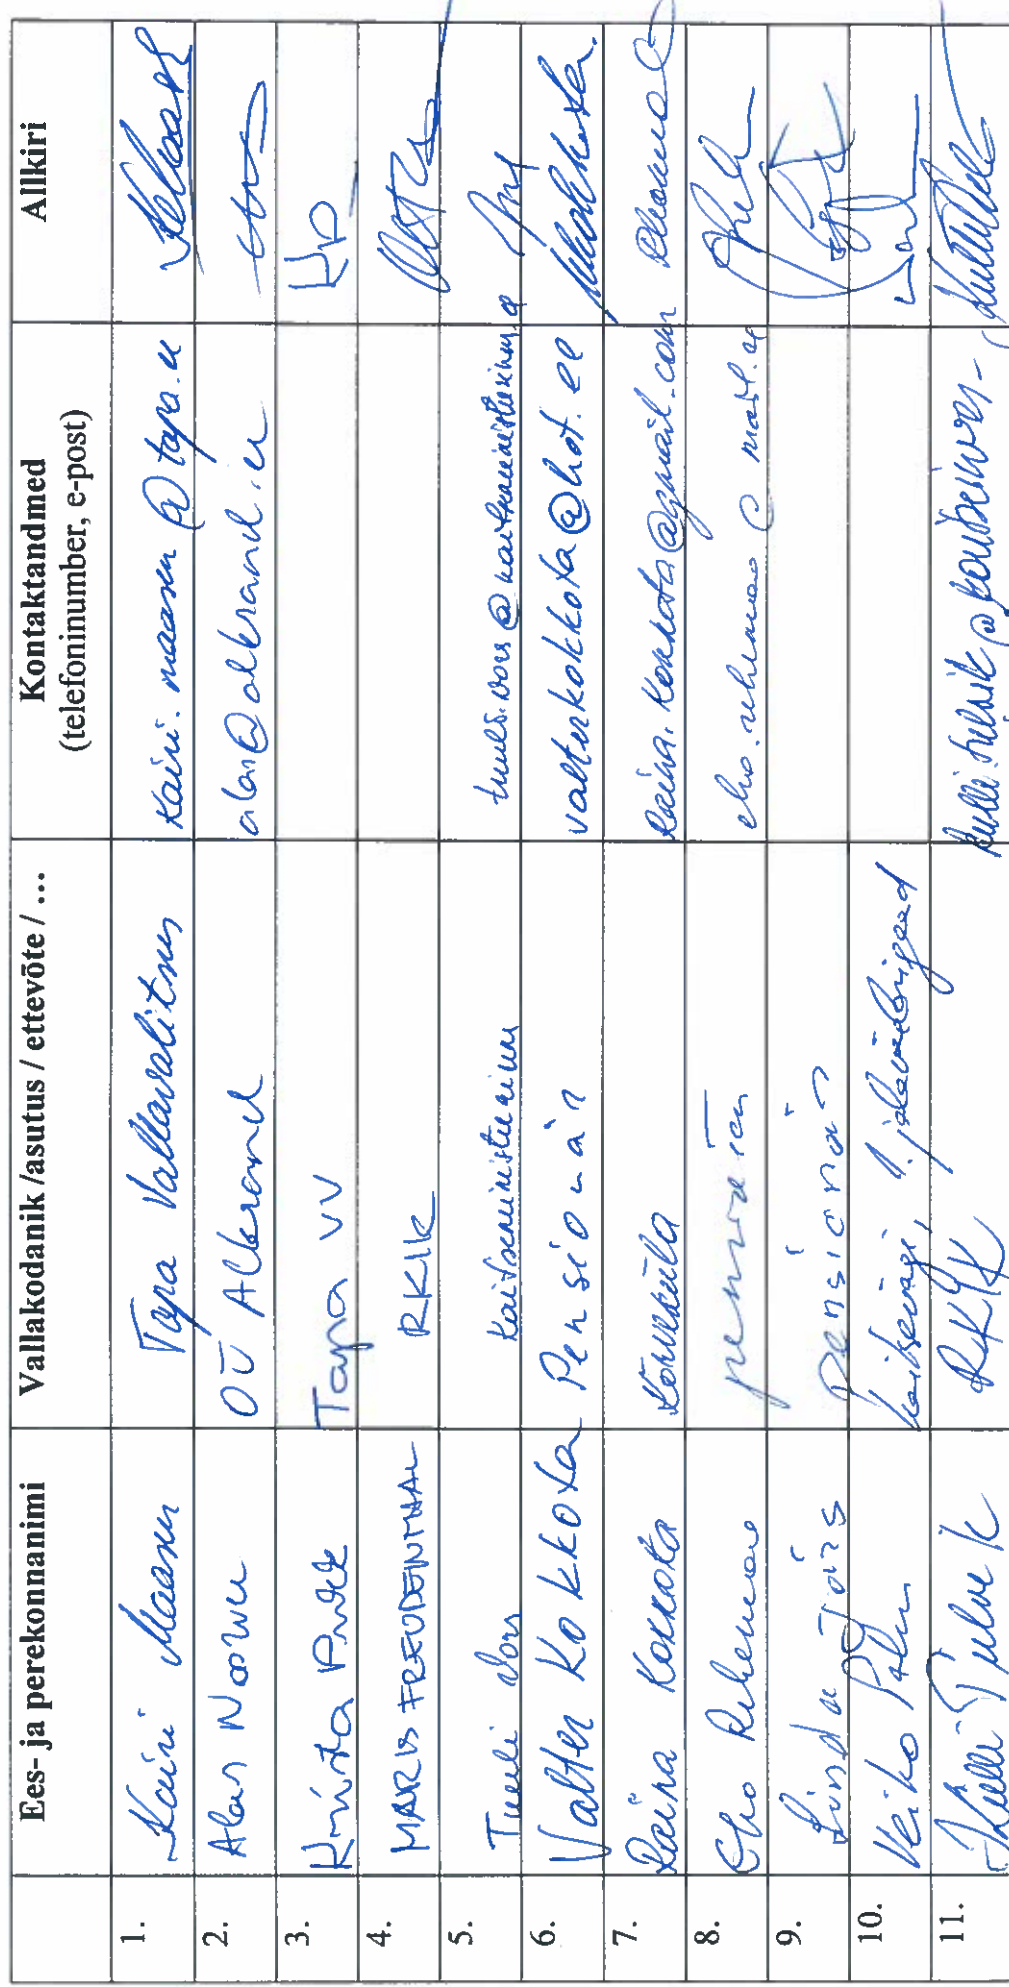 Ees- ja perekonnanimi Vallakodanik /asutus / ettevõte / ... Kontaktandmed Allkiri
(telefoninumber, e-post)
1. Kairi Maasen Tapa Vallavalitsus kairi.maasen@tapa.ee
2. Alar Noorvee OÜ Alkranel alar@alkranel.ee
3. Krista Pintk Tapa VV
4. MARIS FREUDENTHAL RKIK
5. Tuuli Vors Kaitseministeerium tuuli.vors@kaitseministeerium.ee
6. Valter Kokkota Pensionär valterkokkota@hot.ee
7. Raina Kokkota Kõrveküla raina.kokkota@gmail.com
8. Eho Rehemaa pensionär eho.rehemaa@mail.ee
9. Linda Pensionär
10. Veiko Palm Kaitsevägi, 1. jalaväebrigaad
11. Külli Tulvik RKIK